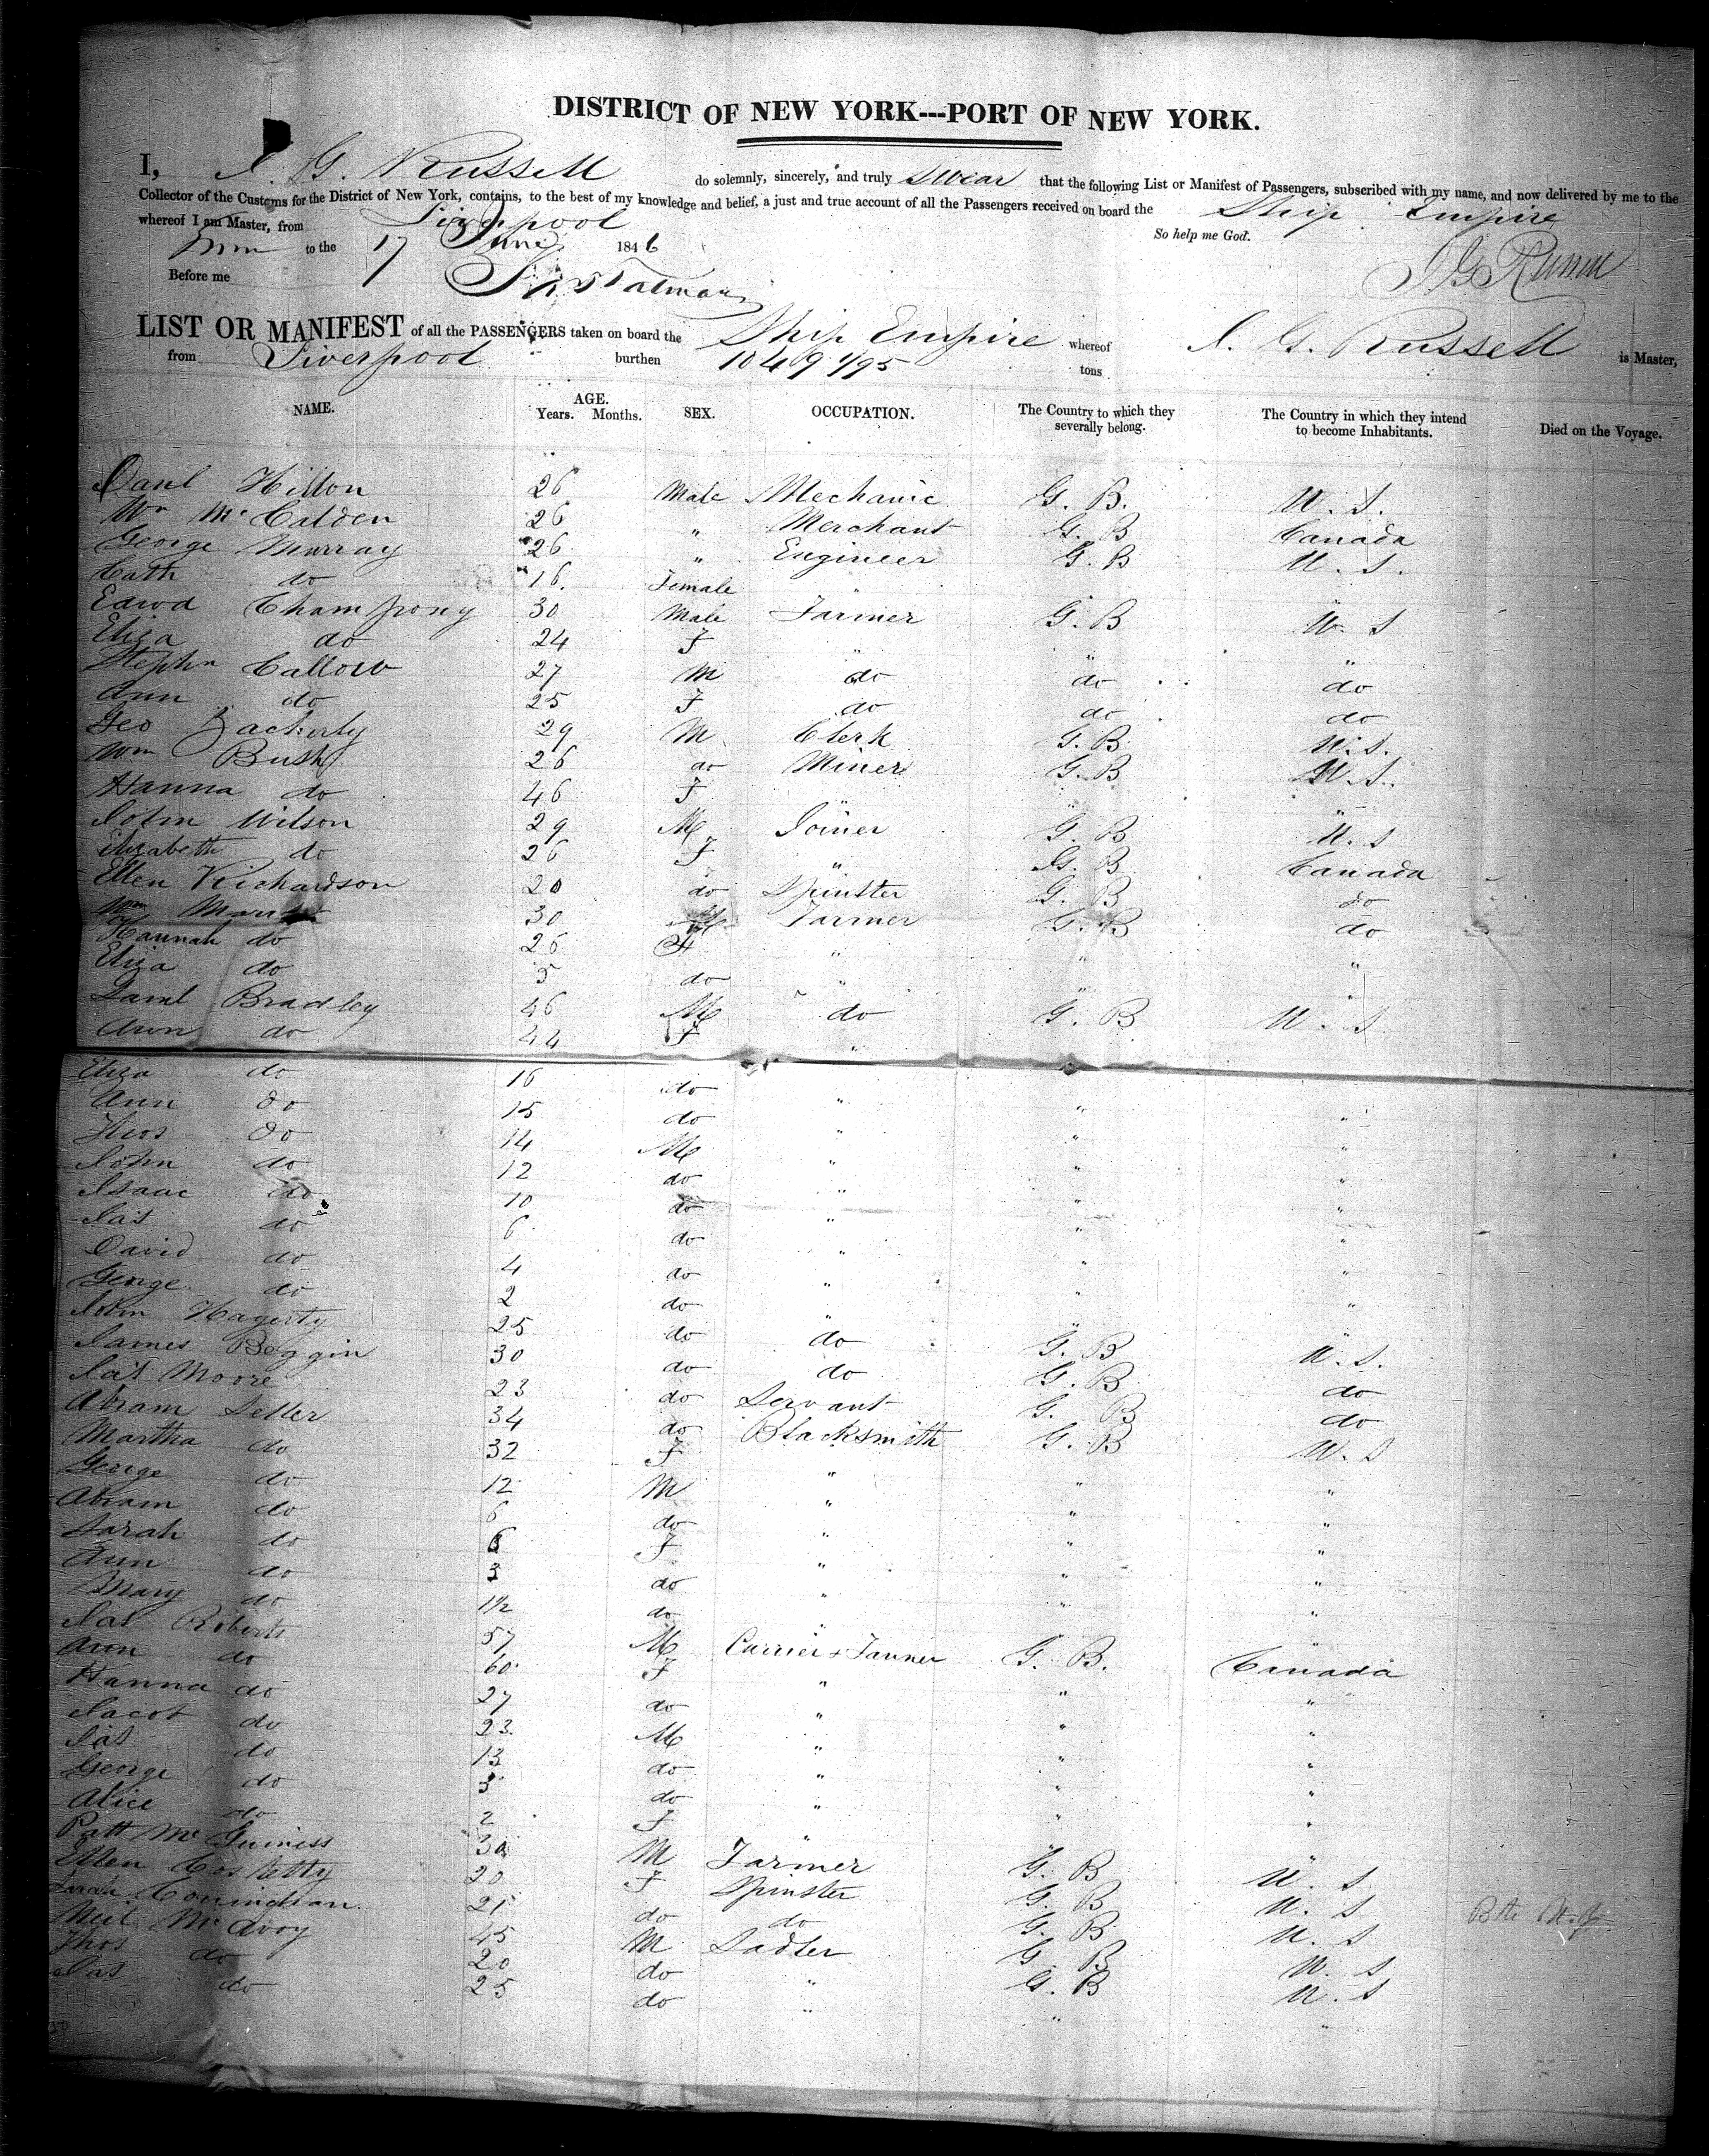 DISTRICT OF NEW YORK---PORT OF NEW YORK.
I, J. G. Russell do solemnly, sincerely, and truly swear that the following List or Manifest of Passengers, subscribed with my name, and now delivered by me to the
Collector of the Customs for the District of New York, contains, to the best of my knowledge and belief, a just and true account of all the Passengers received on board the Ship Empire
whereof I am Master, from Liverpool So help me God.
to the 17 June 1846
Before me J G Russell
LIST OR MANIFEST of all the PASSENGERS taken on board the Ship Empire whereof J. G. Russell is Master,
from Liverpool burthen 1049 1/95 tons
NAME. AGE. Years. Months. SEX. OCCUPATION. The Country to which they severally belong. The Country in which they intend to become Inhabitants. Died on the Voyage.
Danl Hilton 26 Male Mechanic G. B. U. S.
Wm McCalden 26 " Merchant G. B Canada
George Murray 26 " Engineer G. B U. S.
Cath do 16 Female "
Edwd Champony 30 Male Farmer G. B U. S
Eliza do 24 F " " "
Stephn Callow 27 M do do do
Ann do 25 F do do do
Geo Zackerly 29 M Clerk G. B U. S.
Wm Bush 26 do Miner G. B U. S.
Hanna do 46 F " " "
John Wilson 29 M Joiner G. B U. S
Elizabeth do 26 F " G. B Canada
Ellen Richardson 20 do Spinster G. B do
Wm 30 M Farmer G. B do
Hannah do 26 F " " "
Eliza do 5 do " " "
Saml Bradley 46 M do G. B U. S
Ann do 44 F "
Eliza do 16 do " " "
Ann do 15 do " " "
Thos do 14 M " " "
John do 12 do " " "
Isaac do 10 do " " "
Jas do 6 do " " "
David do 4 do " " "
George do 2 do " " "
John Hagerty 25 do do G. B U. S.
James Boggin 30 do do G. B do
Jas Moore 23 do Servant G. B do
Abram Seller 34 do Blacksmith G. B U. S
Martha do 32 F " " "
George do 12 M " " "
Abram do 6 do " " "
Sarah do 6 F " " "
Ann do 3 do " " "
Mary do 1 1/2 do " " "
Jas Roberts 57 M Currier & Tanner G. B. Canada
Ann do 60 F " " "
Hanna do 27 do " " "
Jacob do 23 M " " "
Jas do 13 do " " "
George do 3 do " " "
Alice do 2 F " " "
Patt McGuiness 30 M Farmer G. B U. S
Ellen Costetty 20 F Spinster G. B U. S
Sarah Coningham 21 do do G. B U. S
Neil McAvoy 45 M Sadler G. B U. S
Thos do 20 do " G. B U. S
Jas do 25 do " " "